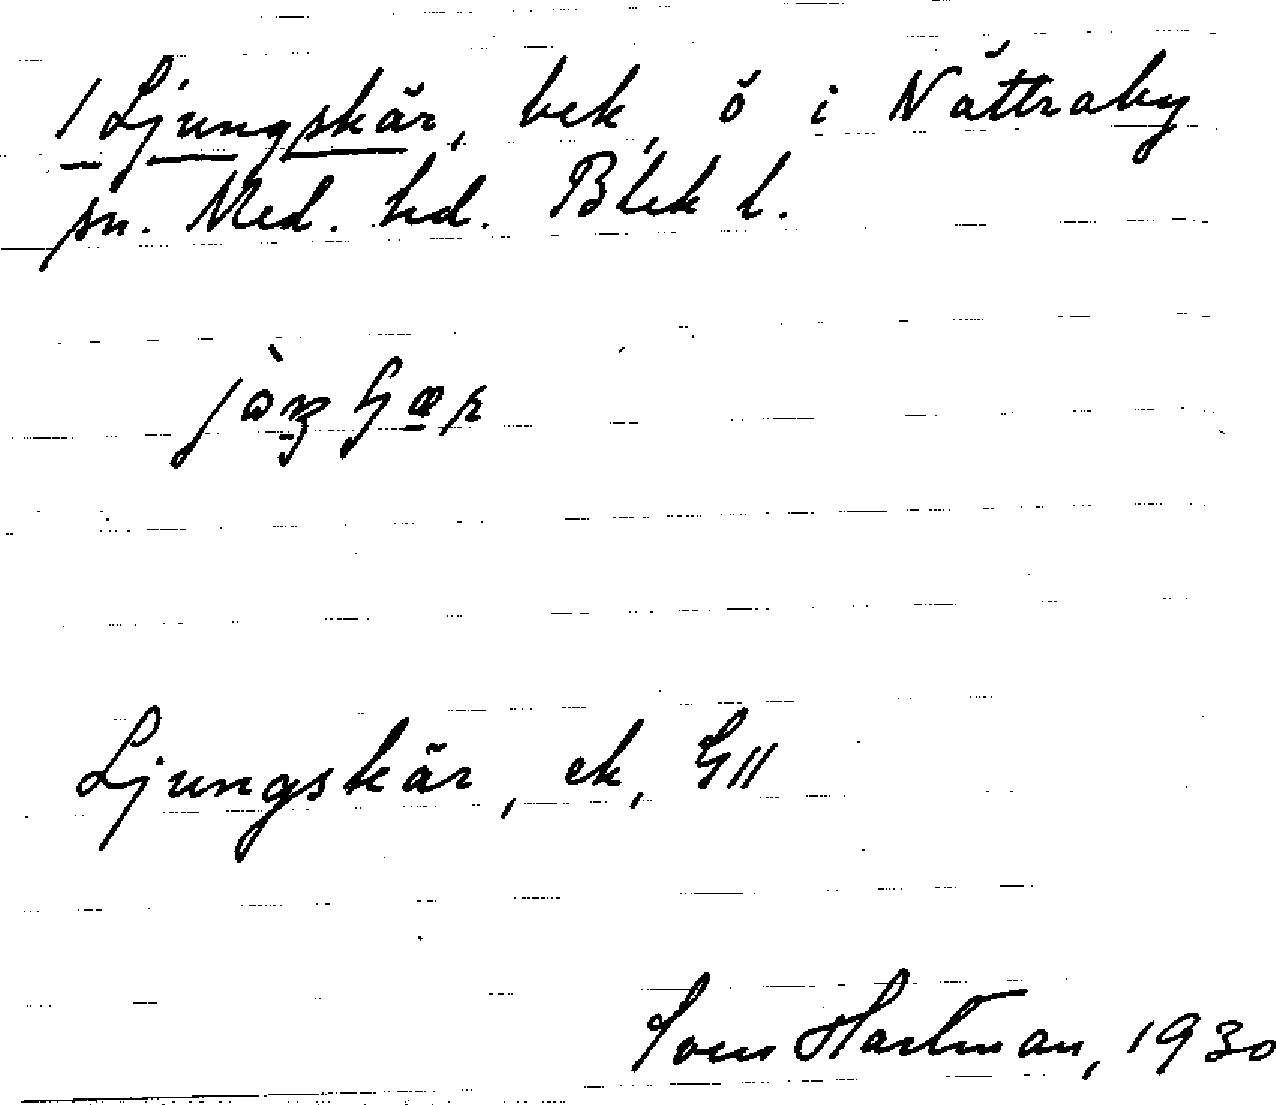 1 Ljungskär, bek, ö i Nättraby
sn. Med. hd. Blek l.
Ljungskär, ek, GII
Sven Hartman, 1930